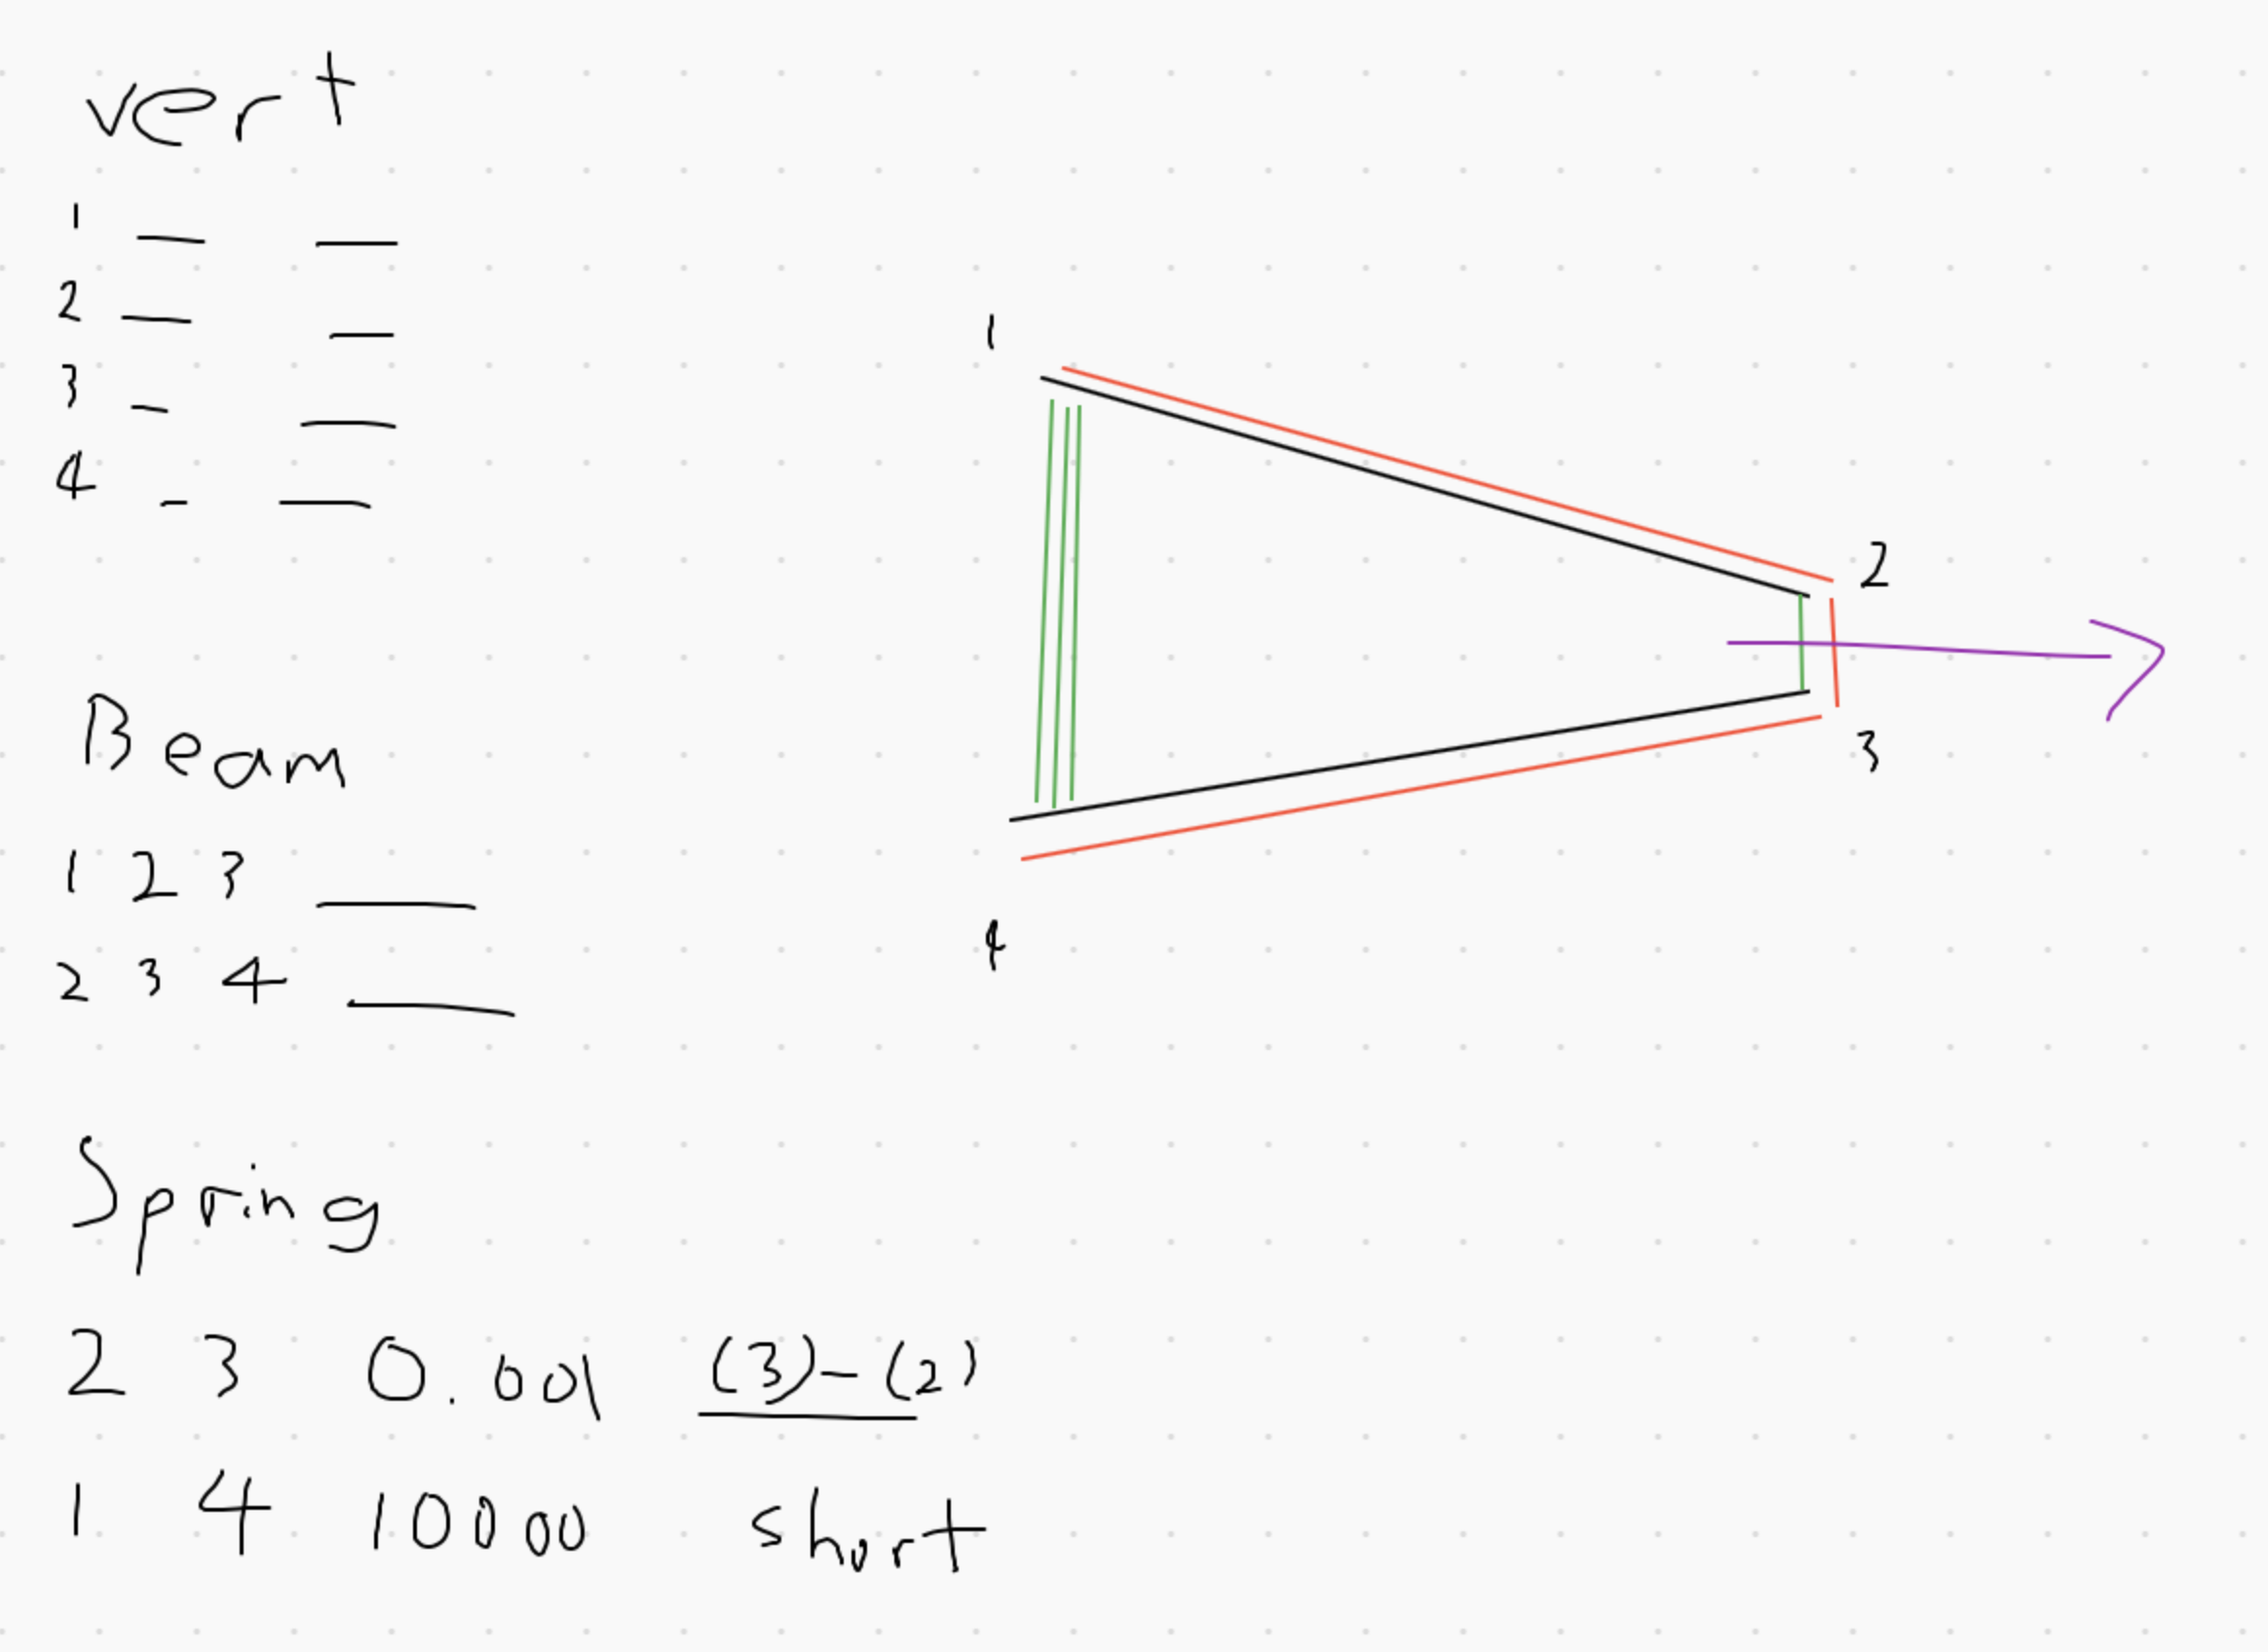 vert
1 — —
2 — —
3 — —
4 — —
Beam
1 2 3 —
2 3 4 —
Spring
2 3 0.001 (3)-(2)
1 4 10000 short
1
2
3
4